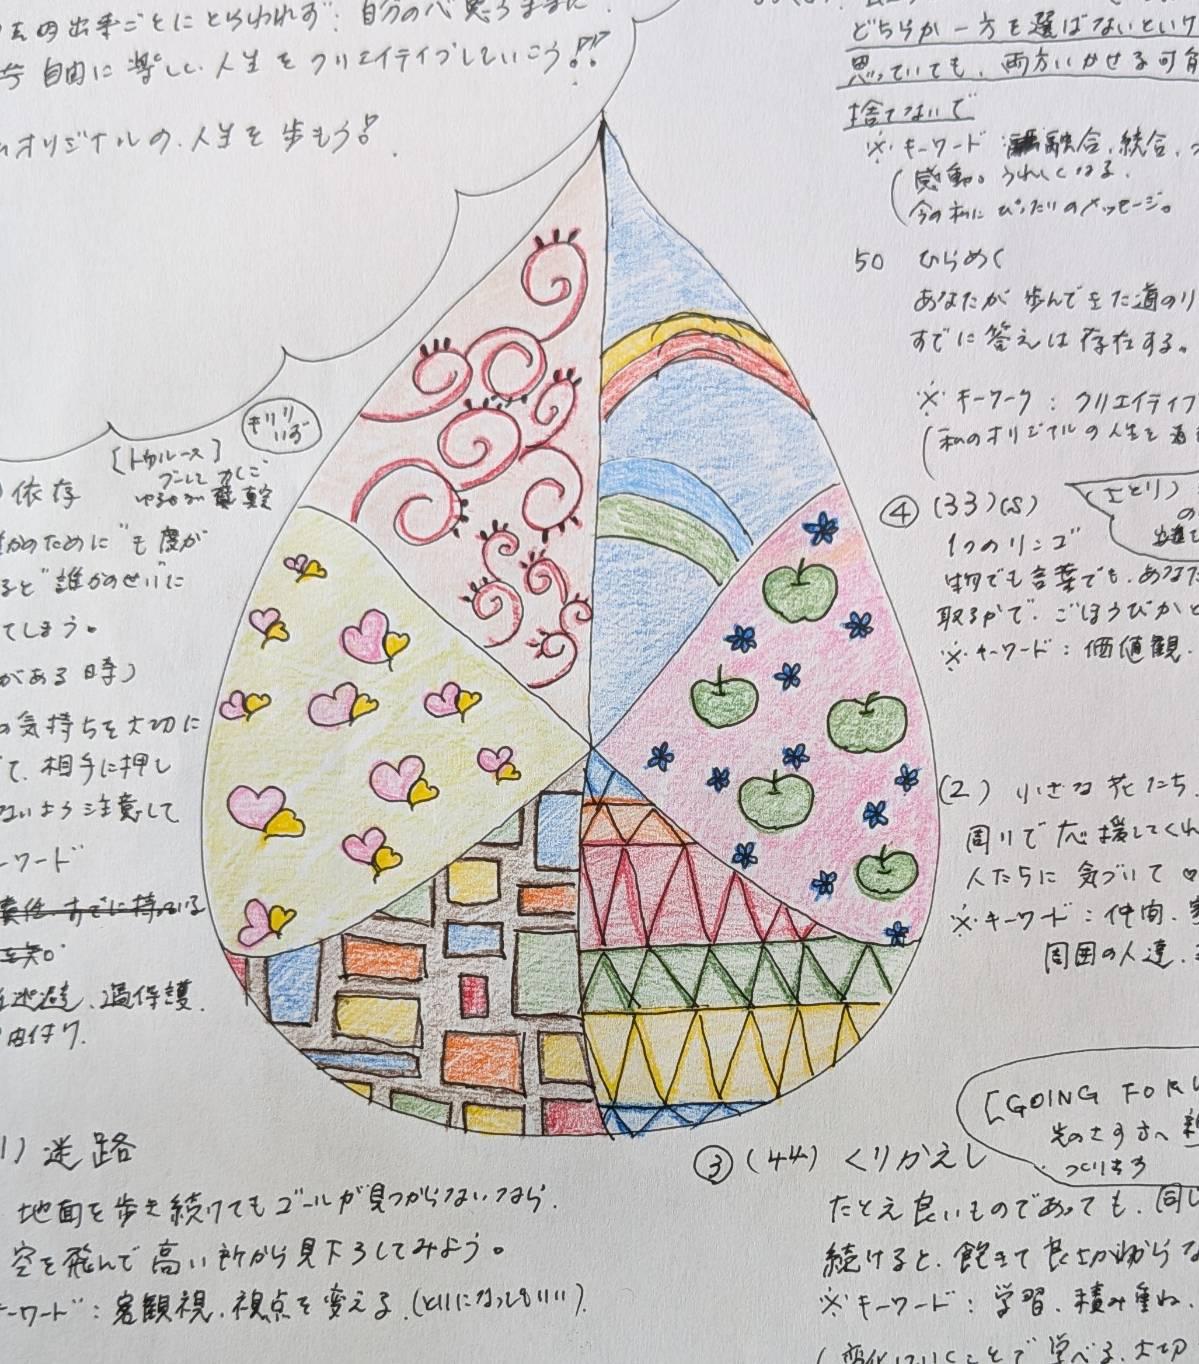 自由に楽しく人生をクリエイティブしていこう!!
オリジナルの人生を歩もう!
どちらか一方を選ばないといけ
思っていても、両方いかせる可能
捨てないで
※キーワード 融合、統合、
感動。うれしくなる。
今の私にぴったりのメッセージ。
50 ひらめく
あなたが歩んできた道のり
すでに答えは存在する。
※キーワーク:クリエイティブ
(私のオリジナルの人生を
④ (33)(S) (さとり)
1つのリンゴ
物でも言葉でも、あなた
取るかで、ごほうびかと
※キーワード:価値観、
(2) 小さな花たち、
周りで応援してくれ
人たちに気づいて♡
※キーワード:仲間、
周囲の人達、
[トゥルース]
依存
のために"も度が
ると"誰かのせい"に
てしまう。
がある時)
の気持ちを大切に
て、相手に押し
ないよう注意して
ーワード
責任 すでに持っている
逃避、過保護、
1) 迷路
地面を歩き続けてもゴールが見つからないなら、
空を飛んで高い所から見下ろしてみよう。
キーワード:客観視、視点を変える、(といになってもいい)
[GOING FOR
つくりもの
③ (44) くりかえし
たとえ良いものであっても、同じ
続けると、飽きて良さがわからな
※キーワード:学習、積み重ね、
(変化していくことで学べる、大切